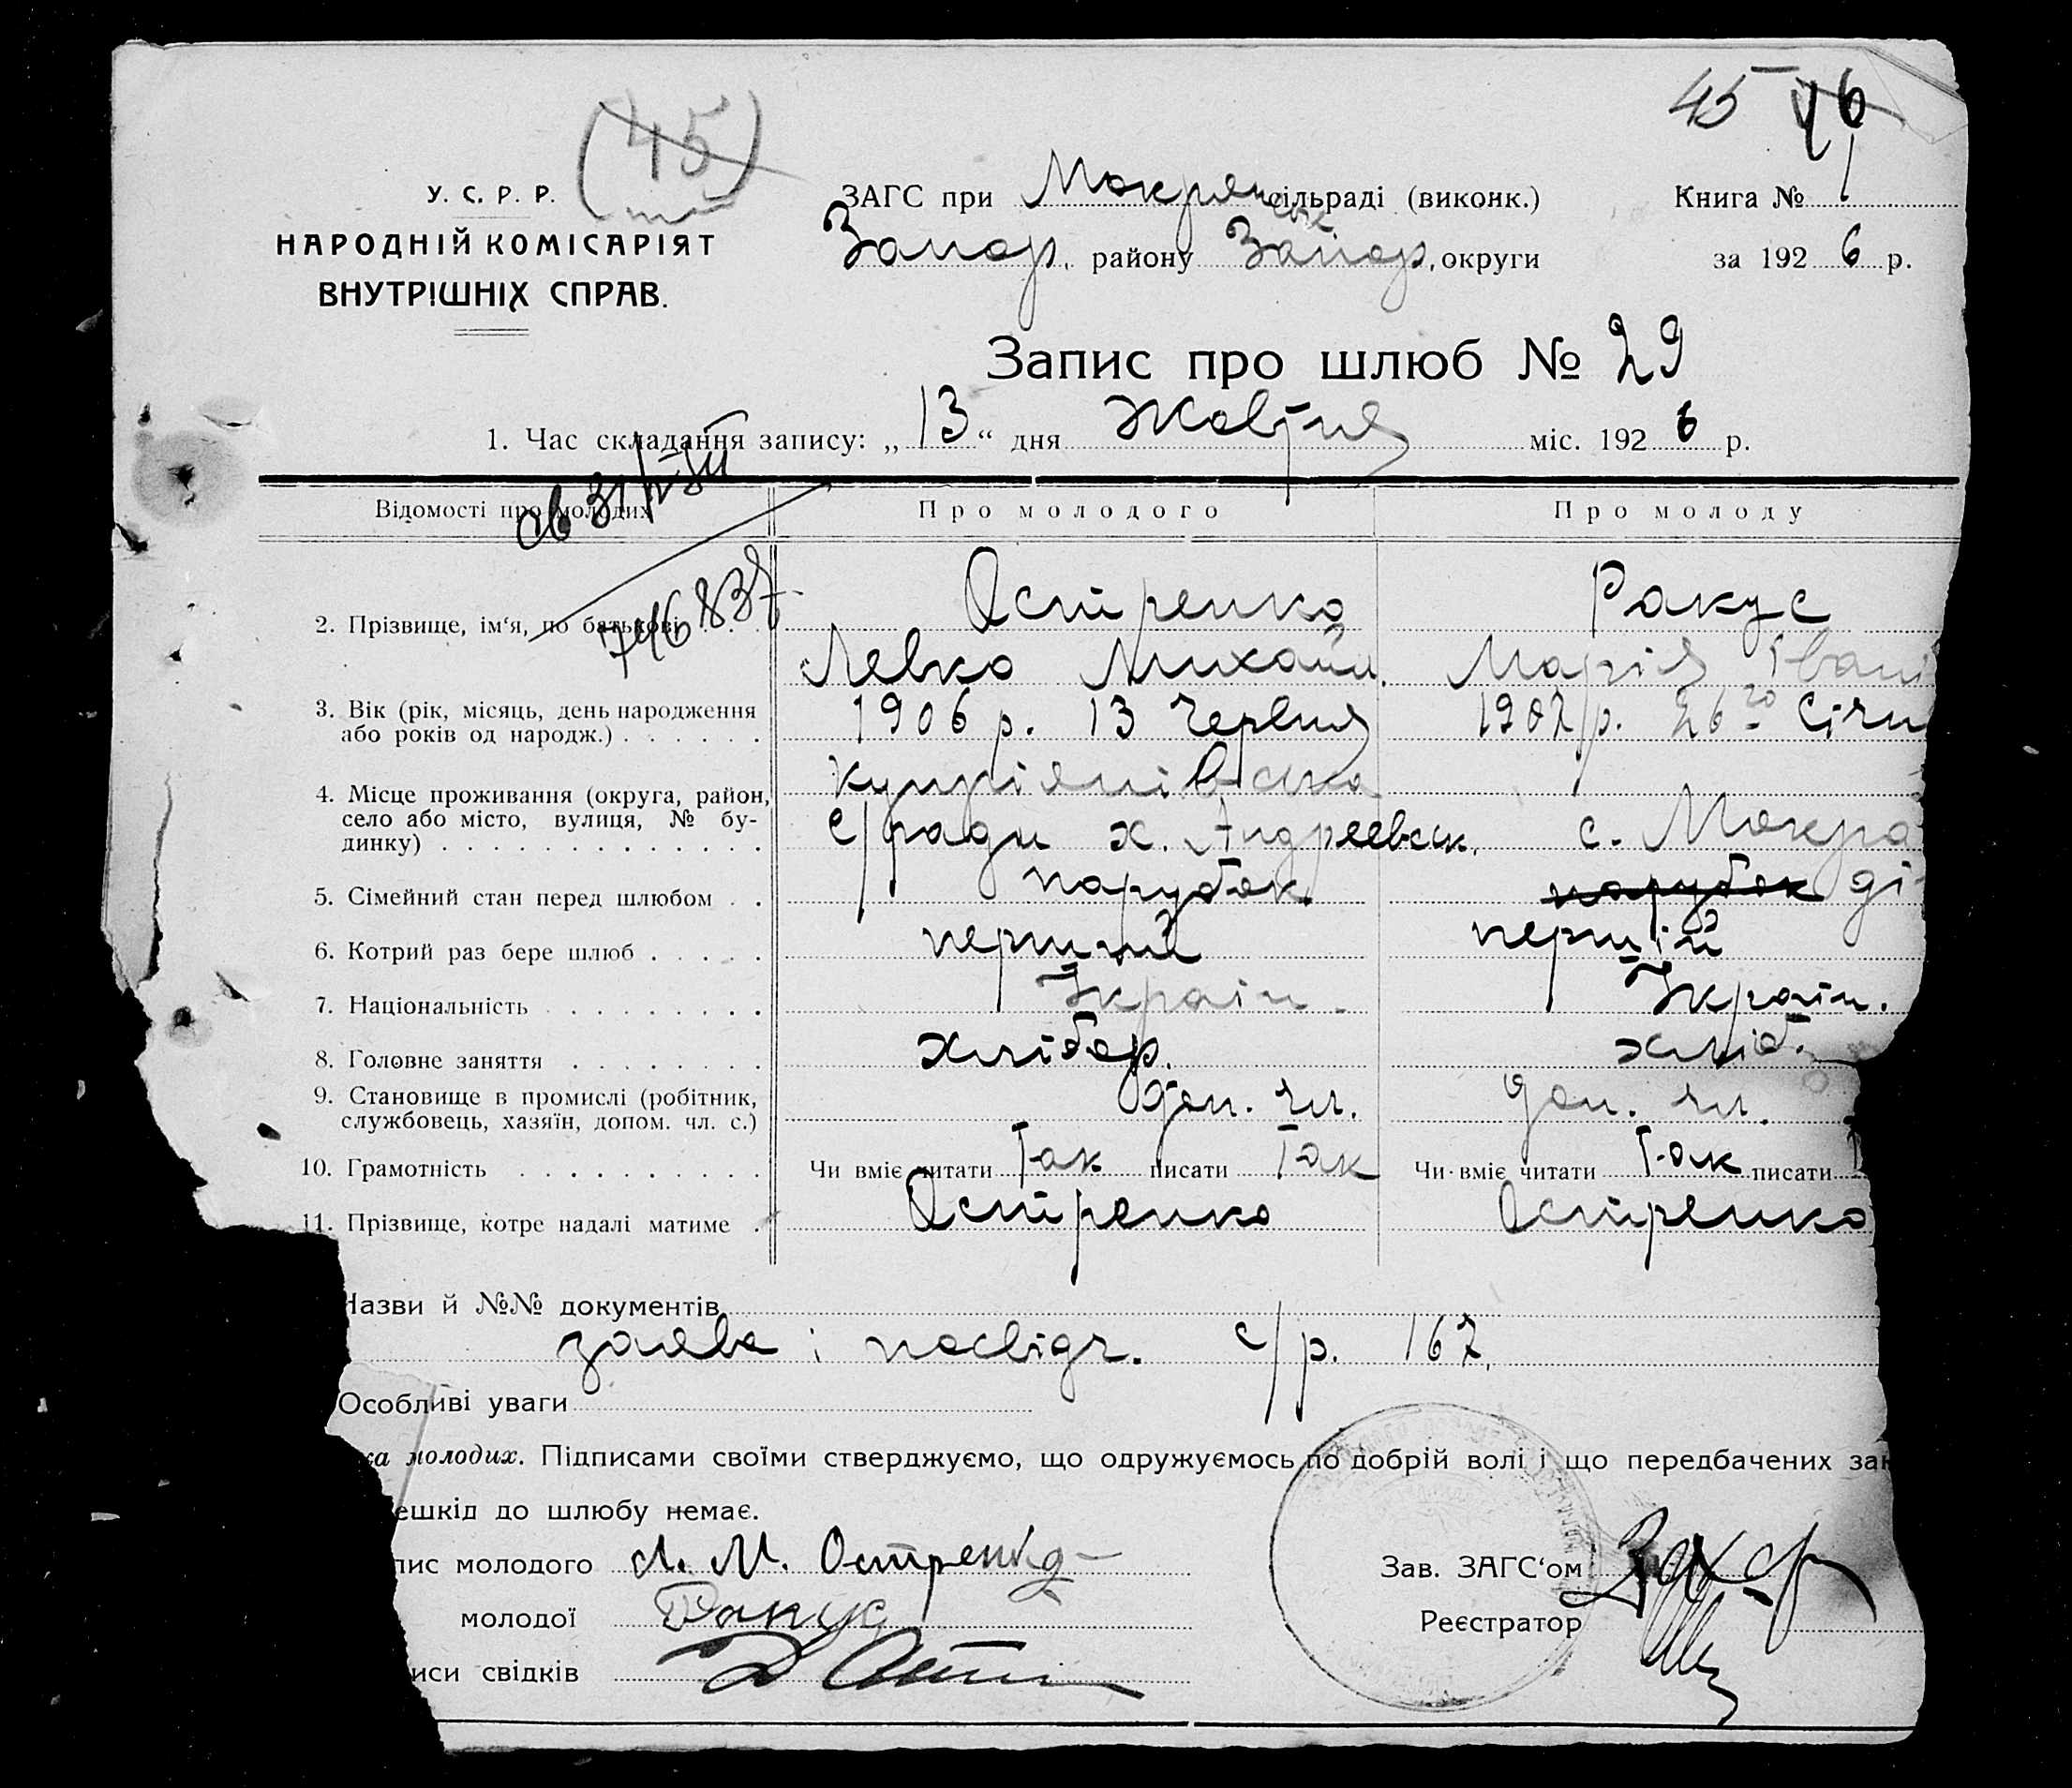 45 46
(45)
У. С. Р. Р.
НАРОДНІЙ КОМІСАРІЯТ
ВНУТРІШНІХ СПРАВ.
ЗАГС при Мокрянськ сільраді (виконк.)
Книга № 1
Запор. району Запор. округи
за 1926 р.
Запис про шлюб № 29
1. Час складання запису: „13“ дня Жовтня міс. 1926 р.
Відомості про молодих
Про молодого
Про молоду
746837
2. Прізвище, ім‘я, по батькові . . .
Остренко
Ракус
Левко Михайл.
Марія Івані
3. Вік (рік, місяць, день народження
або років од народж.) . . . . . .
1906 р. 13 Червня
1907 р. 26го Січн
4. Місце проживання (округа, район,
село або місто, вулиця, № бу-
динку) . . . . . . . . . . . . .
Купріянівська
с/ради х. Андреевск.
с. Мокра
5. Сімейний стан перед шлюбом . .
парубок
парубок ді
6. Котрий раз бере шлюб . . . . .
перший
першій
7. Національність . . . . . . . . .
Україн.
Україн.
8. Головне заняття . . . . . . . .
хлібор.
хліб.
9. Становище в промислі (робітник,
службовець, хазяїн, допом. чл. с.)
доп. чл.
доп. чл.
10. Грамотність . . . . . . . . . .
Чи вміє читати Так писати Так
Чи вміє читати Так писати
11. Прізвище, котре надалі матиме .
Остренко
Остренко
Назви й №№ документів
заява і посвідч. с/р. 167.
Особливі уваги
ка молодих. Підписами своїми стверджуємо, що одружуємось по добрій волі і що передбачених зак
ешкід до шлюбу немає.
пис молодого Л. М. Остренко
Зав. ЗАГС‘ом
молодої Ракус
Реєстратор
иси свідків